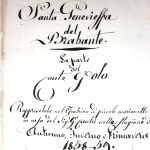 Santa Genevieffa
del
Brabante.
La parte
del
Conte Golo.
Rappresentata nel Teatrino di piccole marionette
in casa del Sig.
Autunno, Inverno e Primavera
1868-69.